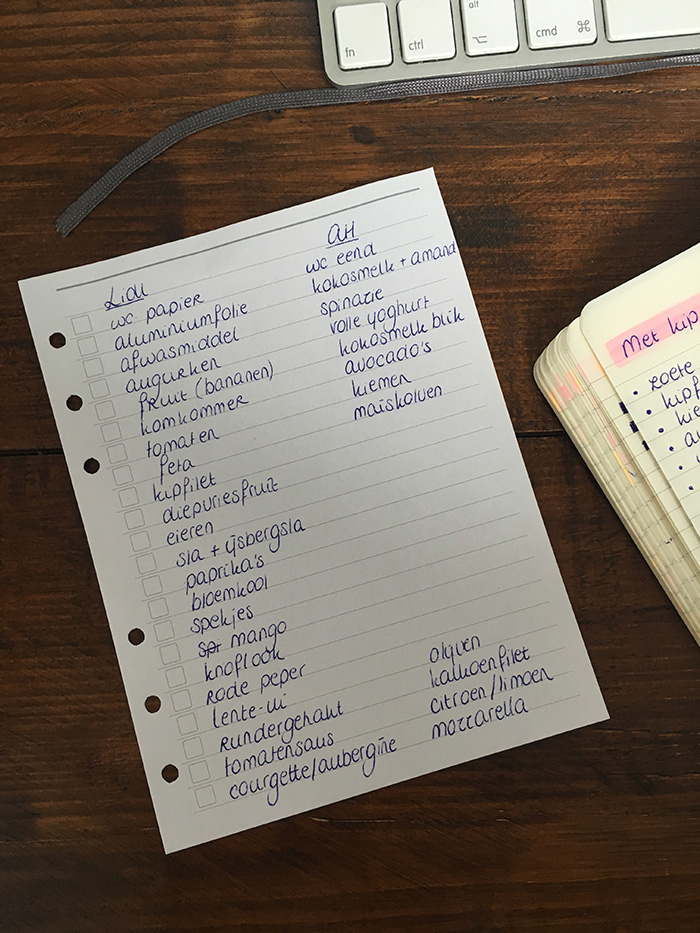 fn
ctrl
alt
⌥
cmd ⌘
Lidl
wc papier
aluminiumfolie
afwasmiddel
augurken
fruit (bananen)
komkommer
tomaten
feta
kipfilet
diepvriesfruit
eieren
sla + ijsbergsla
paprika's
bloemkool
spekjes
mango
knoflook
rode peper
lente-ui
rundergehakt
tomatensaus
courgette/aubergine
AH
wc eend
kokosmelk + amand
spinazie
volle yoghurt
kokosmelk blik
avocado's
kiemen
maiskolven
olijven
kalkoenfilet
citroen/limoen
mozzarella
Met kip
• zoete
• kipf
• kie